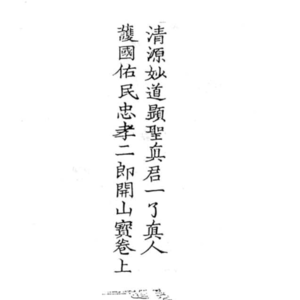 清源妙道顯聖真君一了真人
護國佑民忠孝二郎開山寳卷上